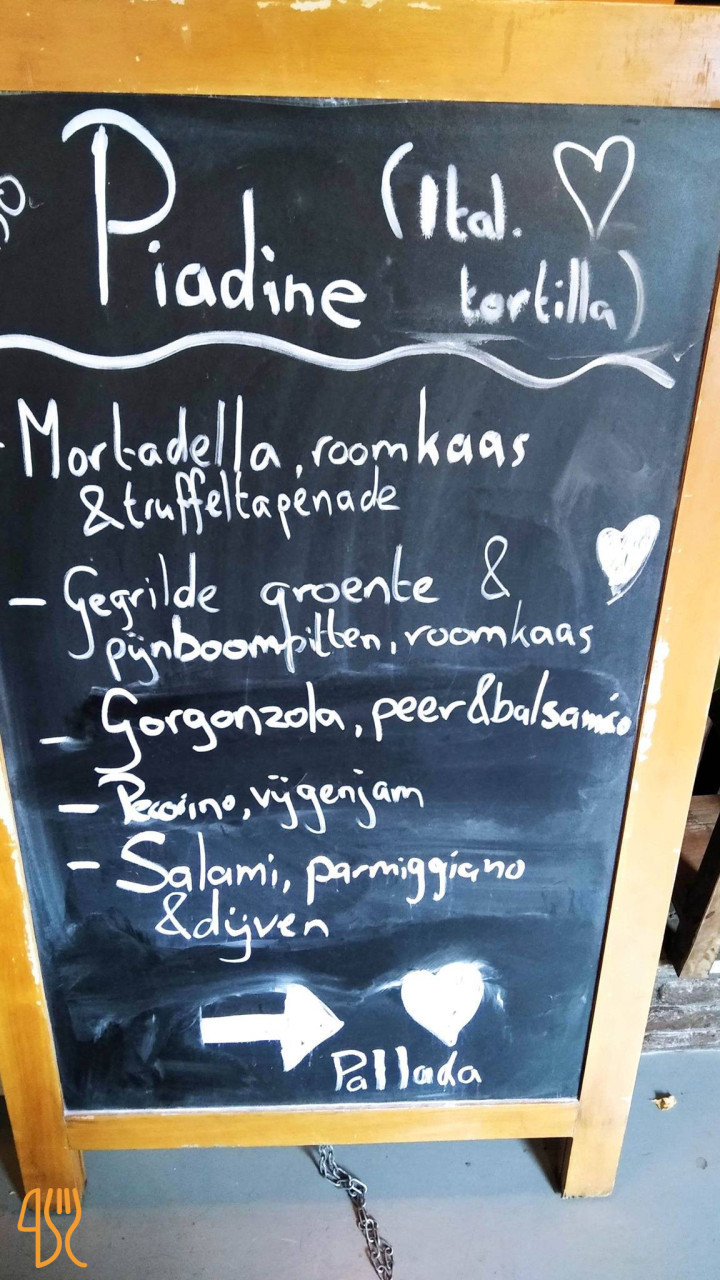 Piadine (Ital.
tortilla)
- Mortadella, roomkaas
& truffeltapenade
- Gegrilde groente &
pijnboompitten, roomkaas
- Gorgonzola, peer & balsamico
- Pecorino, vijgenjam
- Salami, parmiggiano
& dijven
Pallada